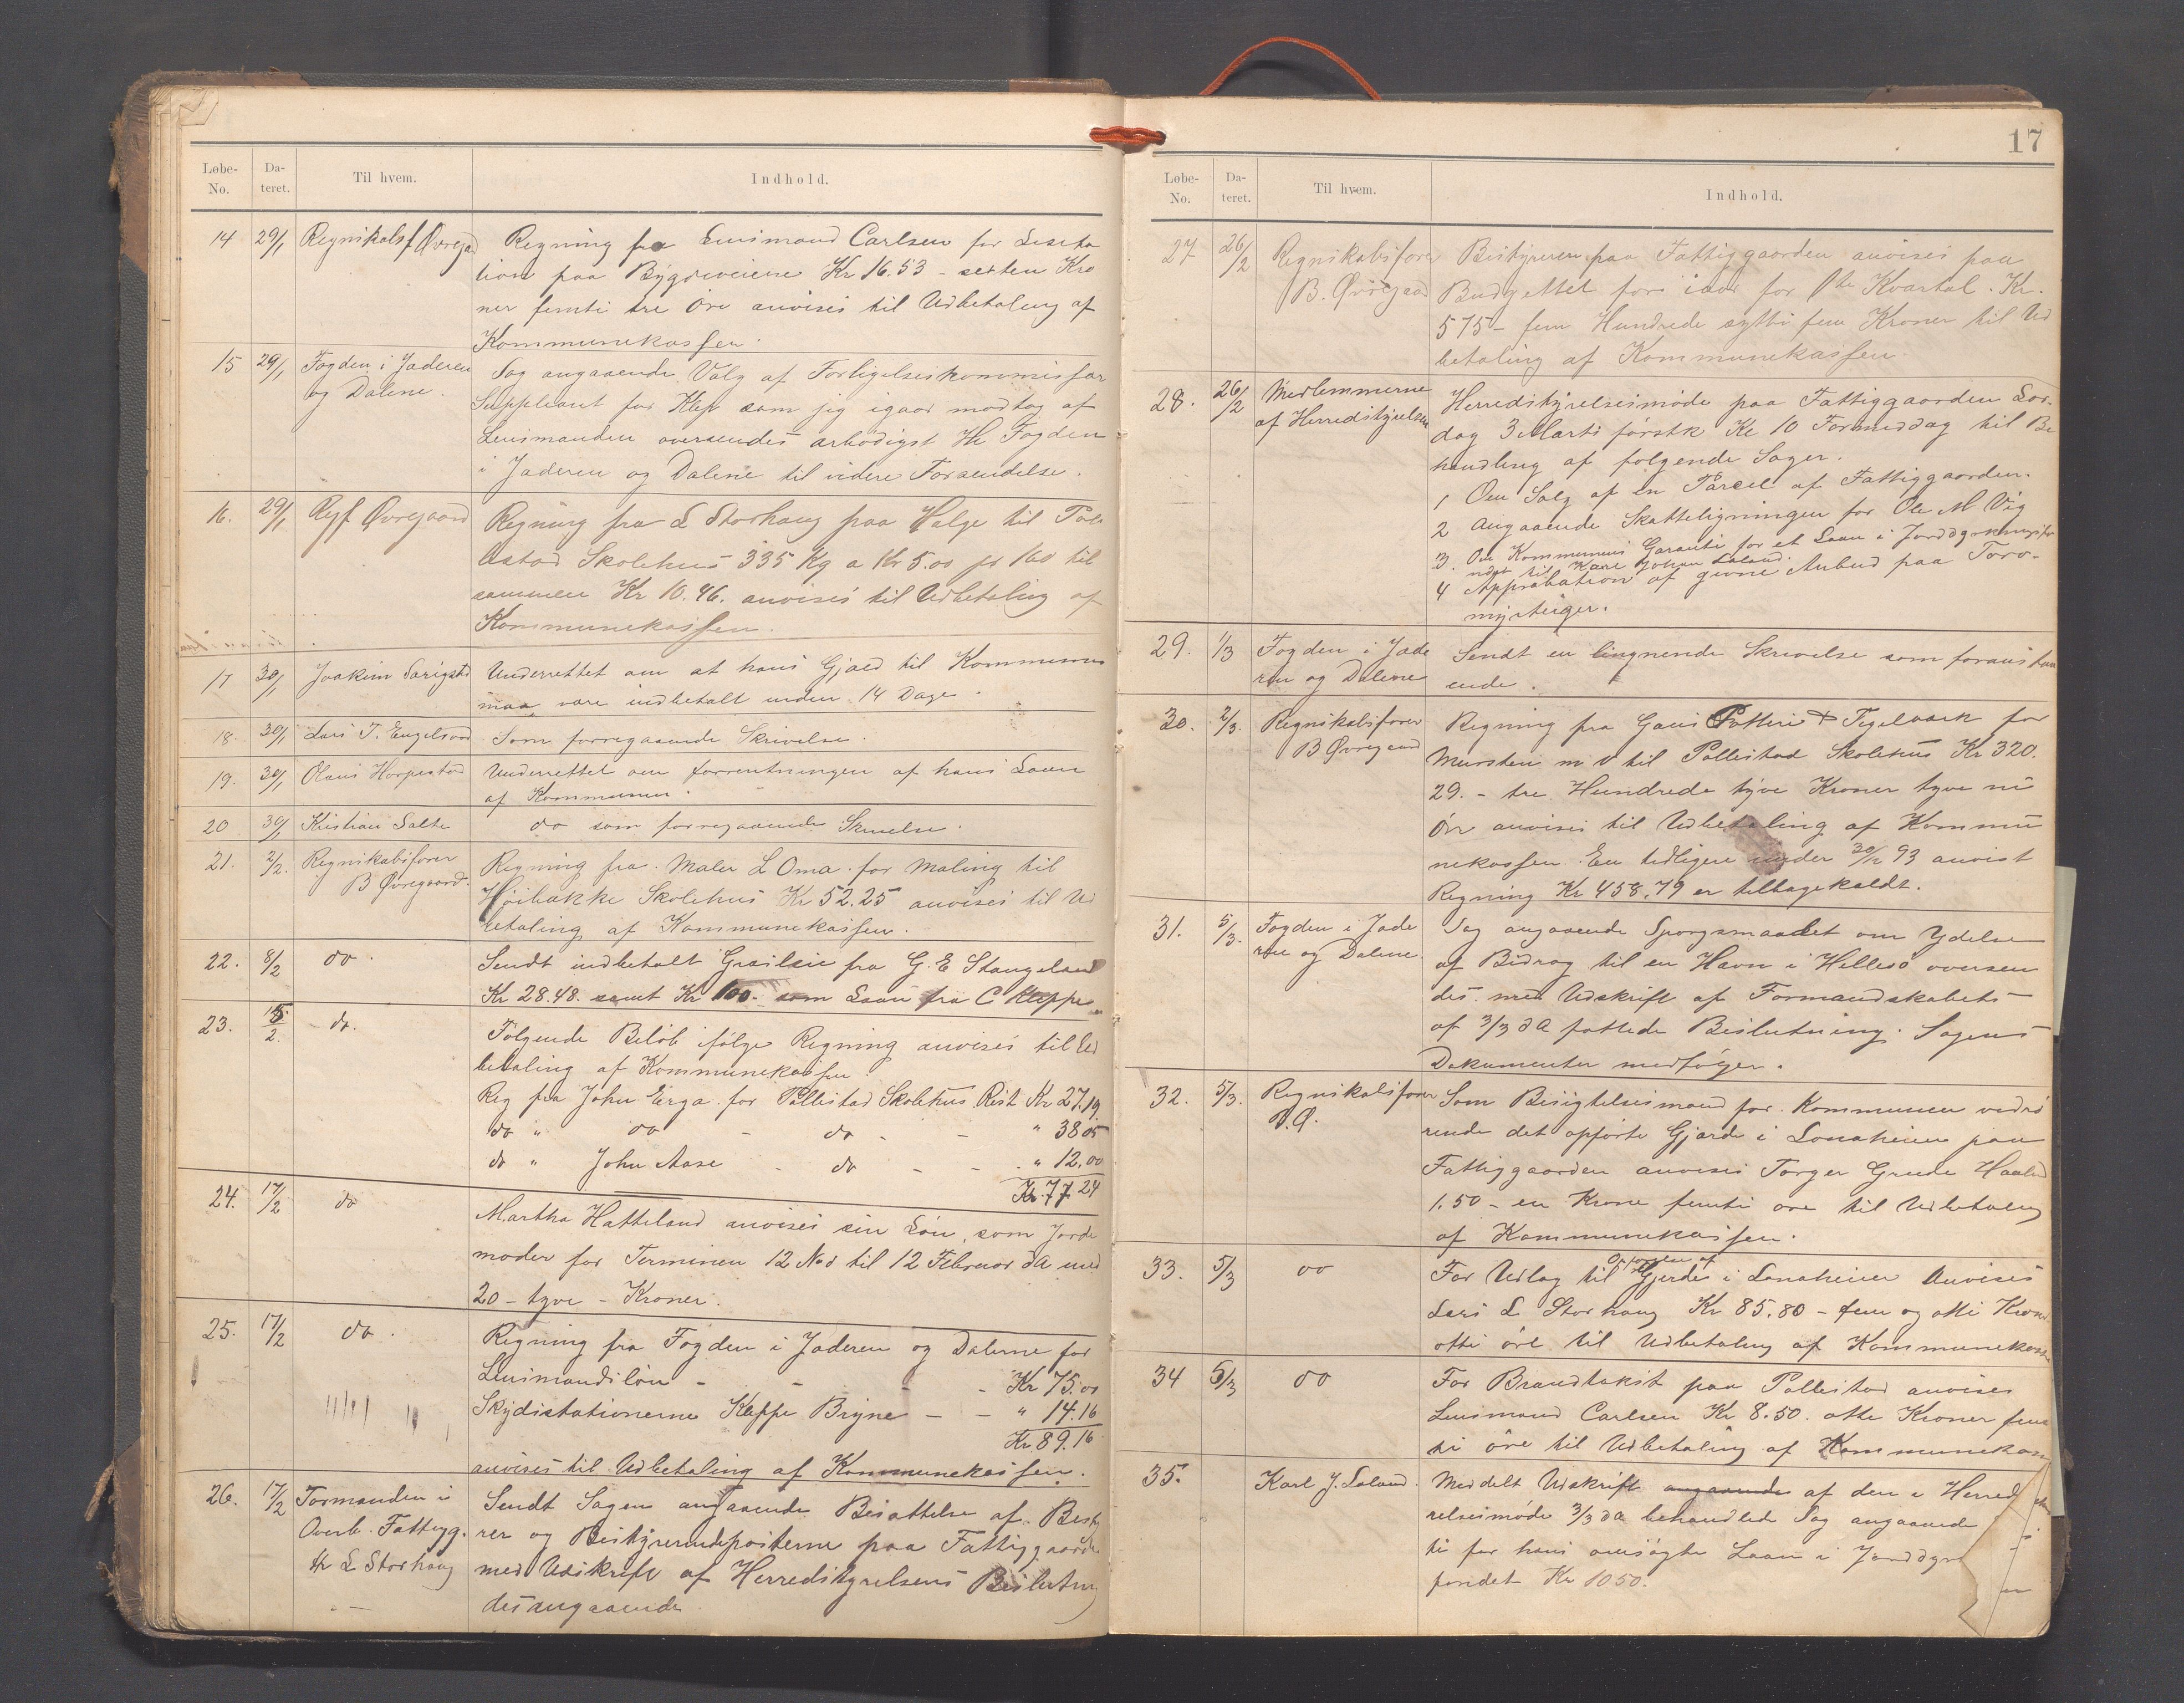 Løbe-No. Da-teret. Til hvem. Indhold.
14 29/1 Regnskabsf Øvregaad Regning fra Lensmand Carlsen for Lisita
tion paa Bygdeveiene Kr 16.53 - sexten Kro
ner femti tre Øre anvises til Udbetaling af
Kommunekassen.
15 29/1 Fogden i Jæderen Sag angaaende Valg af Forligelseskommissær
og Dalene. Suppleant for Klep som jeg igaar modtog af
Lensmanden oversendes ærbødigst Hr Fogden
i Jæderen og Dalene til videre Forsendelse.
16. 29/1 Rgf Øvregaard Regning fra L Storhaug paa
Skolehus 335 Kg a Kr 5.00 pr 160 til
sammen Kr 10.46. anvises til Udbetaling af
Kommunekassen.
17 30/1 Joakim Underrettet om at hans Gjæld til Kommunen
maa være indbetalt inden 14 Dage.
18. 30/1 Lars T. Engelsvold Som forregaaende Skrivelse.
19. 30/1 Olaus Horpestad Underrettet om forrentningen af hans Laan
af Kommunen.
20 30/1 Kristian Salte do som forregaaende Skrivelse.
21. 2/2. Regnskabsfører Regning fra Maler L Oma for Maling til
B Øvregaard. Høibakke Skolehus Kr 52.25 anvises til Ud
betaling af Kommunekassen.
22. 8/2 do. Sendt indbetalt fra G. E Stangeland
Kr 28.48. samt Kr 100.- som Laan fra C Kleppe
23. 15/2. do. Følgende Beløb ifølge Regning anvises til Ud
betaling af Kommunekassen.
Reg fra John Erga for Pollestad Skolehus Rest Kr 27.19.
do " do - do - - " 38 05
do " John Aase - do - - " 12.00
Kr. 77 24
24. 17/2 do Martha Hatteland anvises sin Løn, som Jorde
moder for Terminen 12 Nov til 12 Februar da med
20 - tyve - Kroner.
25. 17/2 do. Regning fra Fogden i Jæderen og Dalerne for
Lensmandsløn - - - - Kr 75.00
Skydsstationerne Kleppe Bryne - - " 14.16
Kr 89.16
anvises til Udbetaling af Kommunekassen.
26. 17/2 Formanden i Sendt Sagen angaaende Besættelse af Besty
Overb. Fattigg. rer og Bestyrerindeposterne paa Fattiggaarden
hr L Storhaug med Udskrift af Herredstyrelsens Beslutning
desangaaende.
17
Løbe-No. Da-teret. Til hvem. Indhold.
27 26/2 Regnskabsfører Bestyreren paa Fattiggaarden anvises paa
B. Øvregaad Budgettet for iaar for 1ste Kvartal. Kr.
575 - fem Hundrede sytti fem Kroner til Ud
betaling af Kommunekassen.
28. 26/2 Medlemmerne Herredstyrelsesmøde paa Fattiggaarden Lør-
af Herredstyrelsen dag 3 Marts førstk Kl 10 Formiddag til Be
handling af følgende Sager.
1 Om Salg af en Parcel af Fattiggaarden.
2 Angaaende Skatteligningen for Ole M Vig
3. Om Kommunens Garanti for et Laan i Jorddyrkningsfo
ndet til Karl Johan Laland.
4 Approbation af givne Anbud paa Torv-
myrteiger.
29. 1/3 Fogden i Jæde Sendt en lingnende Skrivelse som foranstaa
ren og Dalene ende.
30. 2/3. Regnskabsfører Regning fra Gans Potteri & Tegelværk for
B Øvregaad Mursten m v til Pollestad Skolehus Kr 320.
29. - tre Hundrede tyve Kroner tyve ni
Øre anvises til Udbetaling af Kommu
nekassen. En tidligere under 30/12 93 anvist
Regning Kr 458.79 er tilbagekaldt.
31. 5/3. Fogden i Jæde Sag angaaende Spørgsmaalet om Ydelse
ren og Dalene. af Bidrag til en Havn i Hellesø oversen
des med Udskrift af Formandskabets
af 3/3 da fattede Beslutning. Sagens
Dokumenter medfølger.
32. 5/3. Regnskabsfører Som Besigtelsesmand for Kommunen vedrø
B.Ø. rende det opførte Gjærde i Lonaheien paa
Fattiggaarden anvises Torger Grude Haaland
1.50 - en Krone femti øre til Udbetaling
af Kommunekassen.
33. 5/3 do For Udlæg til Opførelsen af Gjerdet i Lonaheien Anvises
Lars L Storhaug Kr 85.80 - fem og otti Kroner
otti øre til Udbetaling af Kommunekassen
34 5/3 do For Brandtakst paa Pollestad anvises
Lensmand Carlsen Kr 8.50. otte Kroner fem
ti øre til Udbetaling af Kommunekassen
35. Karl J. Laland. Meddelt Udskrift angaaende af den i Herredsty
relsesmøde 3/3 da behandlede Sag angaaende
ti for hans ansøgte Laan i Jorddyrk
fondet Kr 1050.